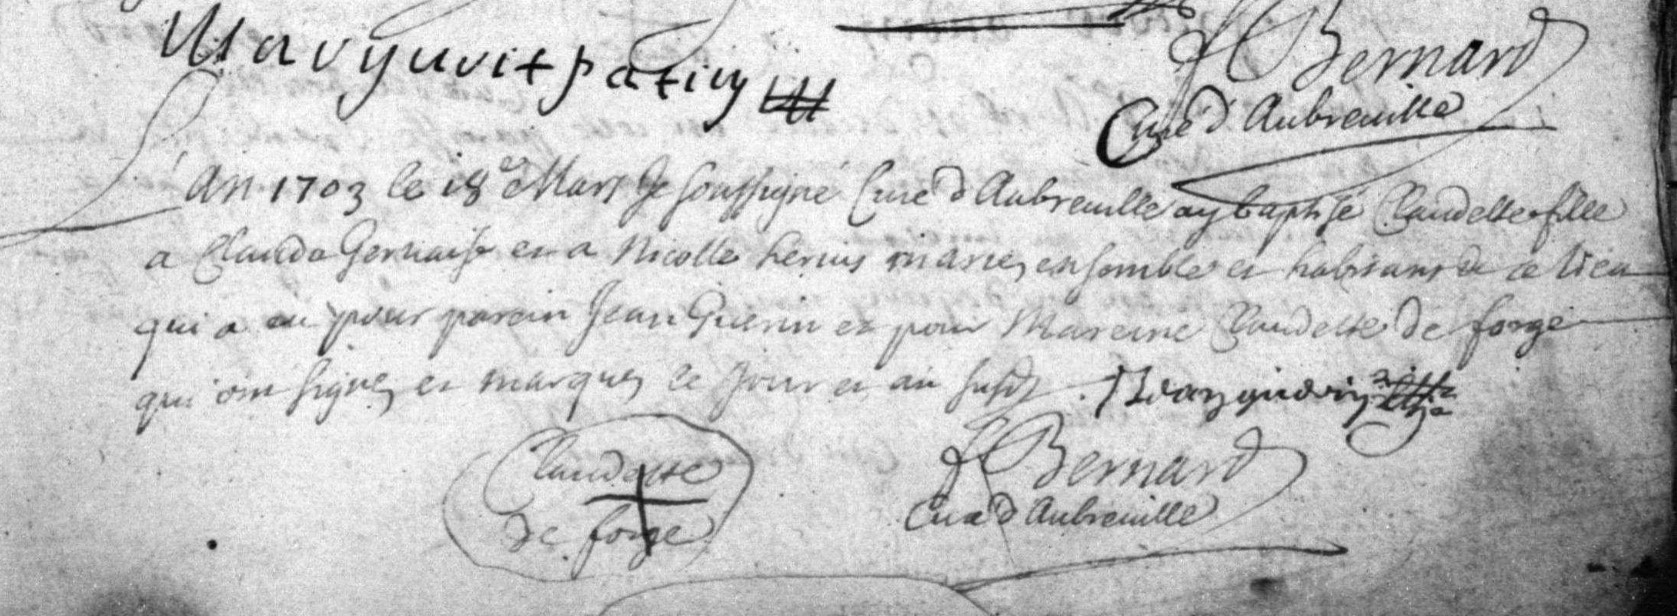 Bernard
Curé d'Aubreuille
L'An 1703 le 18e Mars Je soussigné Curé d'Aubreuille ay baptisé Claudette fille
a Claude Gervaise et a Nicolle mariez ensemble et habitans de ce lieu
qui a eu pour parein Jean Guerin et pour Mareine Claudette de forge
qui ont signez et marquez le Jour et an susdt
Claudette
de forge
Bernard
Curé d'Aubreuille